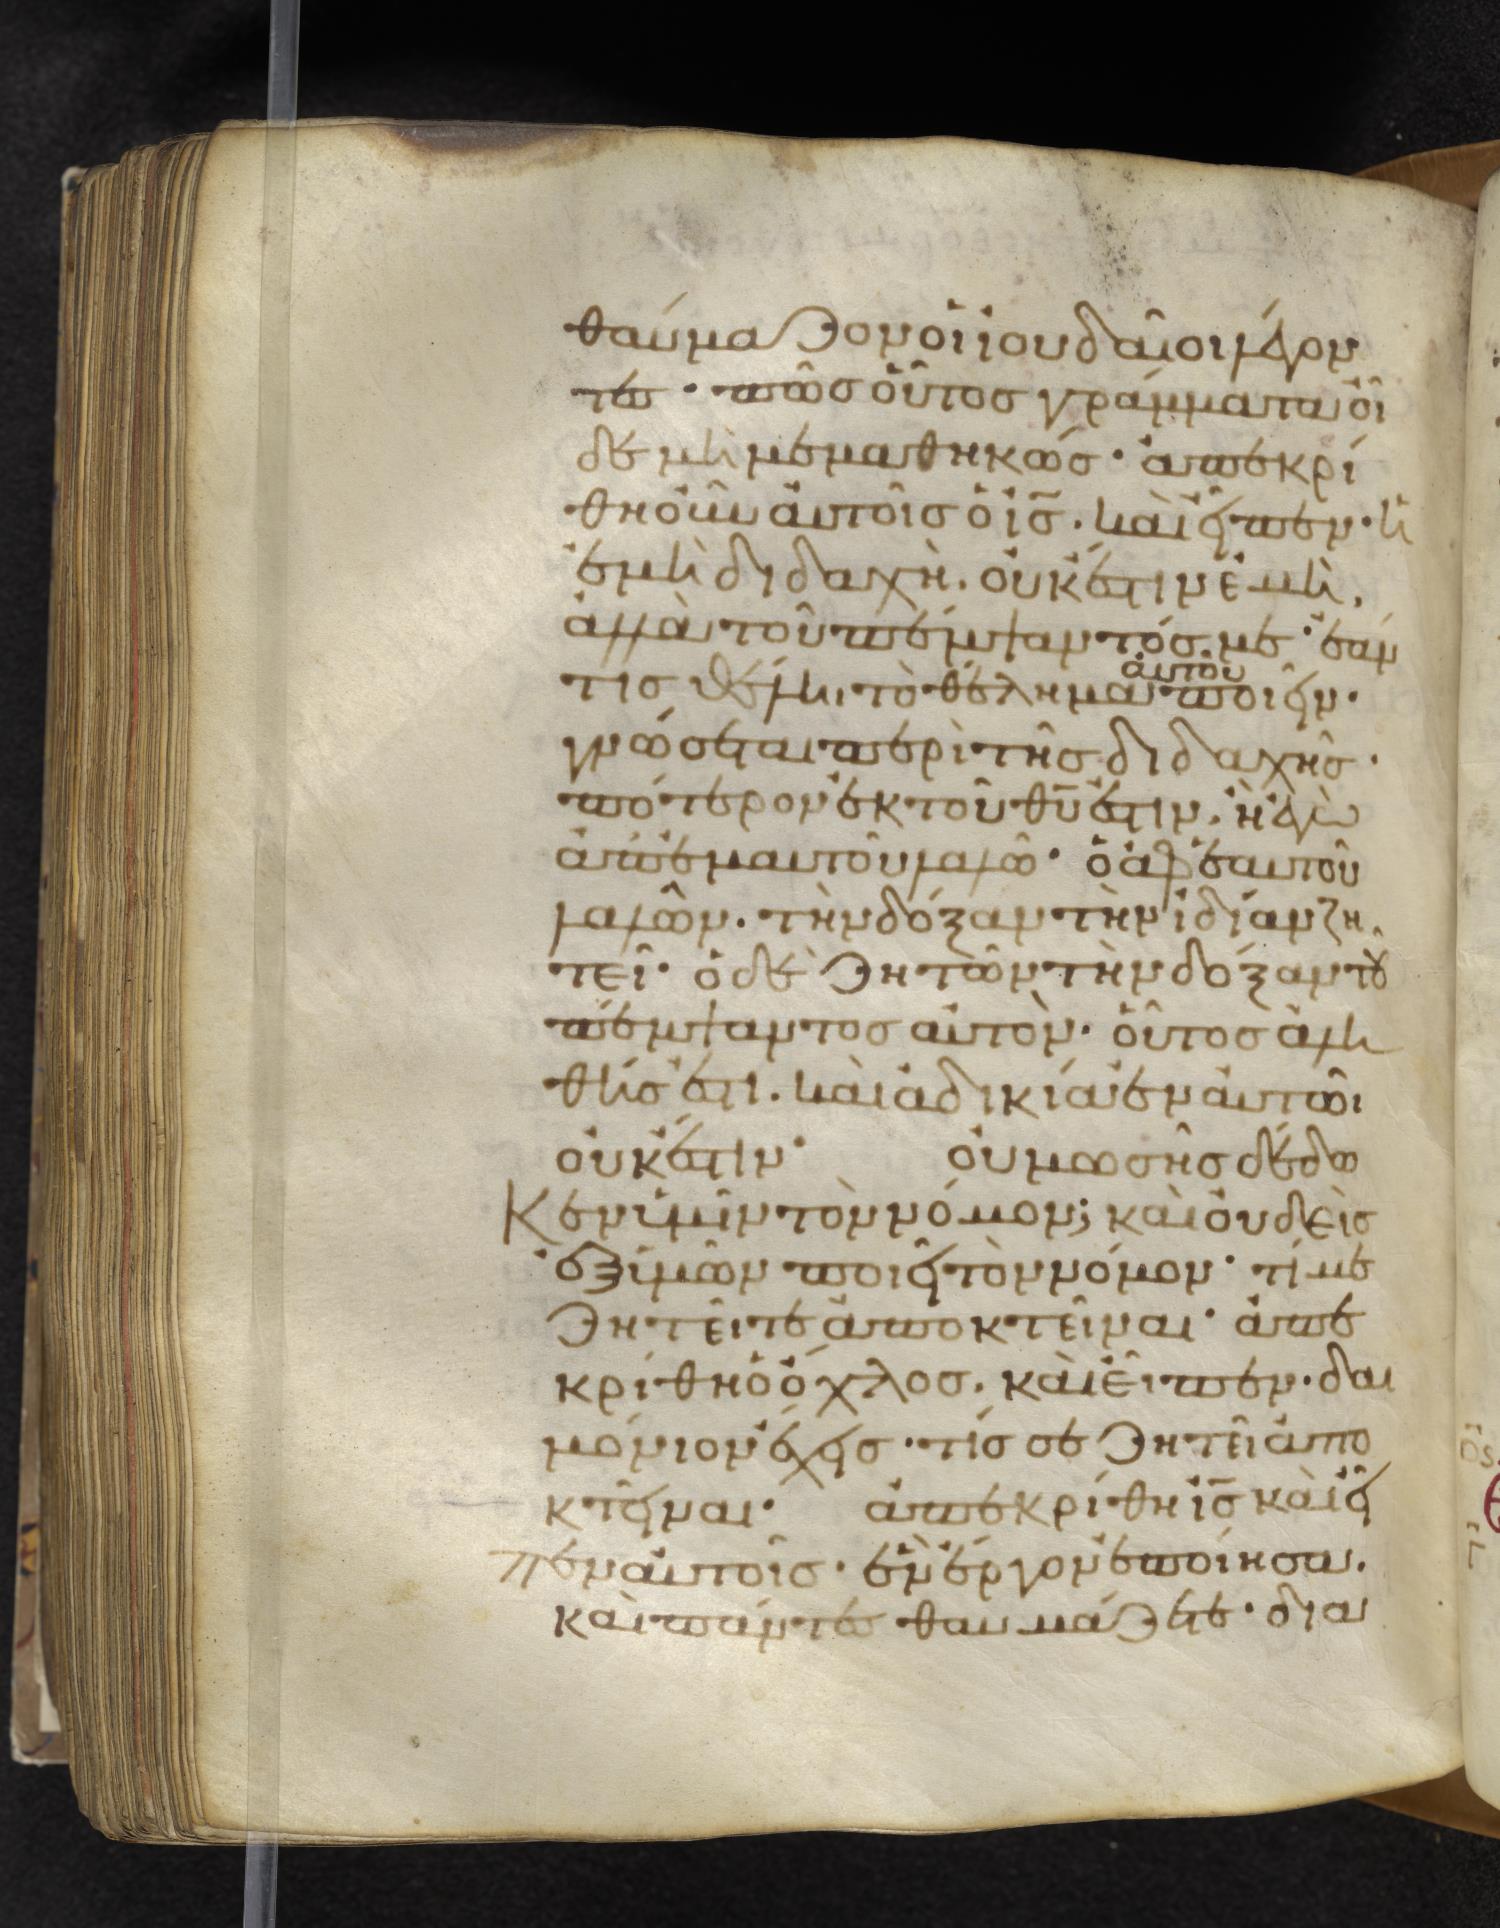 θαύμαζον οἱ ἰουδαῖοι λέγον
τες · πῶς οὗτος γράμματα οἶ
δε μὴ μεμαθηκώς · ἀπεκρί
θη οὖν αὐτοῖς ὁ ἰ̅ς̅. καὶ εἶπεν · ἡ
ἐμὴ διδαχὴ. οὐκ ἔστιν ἐμὴ.
ἀλλὰ τοῦ πέμψαντός με · ἐάν
τις θέλη, τὸ θέλημα αὐτοῦ ποιεῖν ·
γνώσεται περὶ τῆς διδαχῆς ·
πότερον ἐκ τοῦ θ̅υ̅ ἐστιν. ἢ ἐγὼ
ἀπ' ἐμαυτοῦ λαλῶ · ὁ ἀφ' ἑαυτοῦ
λαλῶν. τὴν δόξαν τὴν ἰδίαν ζη
τεῖ · ὁ δὲ ζητῶν τὴν δόξαν τοῦ
πέμψαντος αὐτὸν · οὗτος ἀλη
θής ἐστι. καὶ ἀδικία ἐν αὐτῶι
οὐκ ἔστιν · οὐ μωσῆς δέδω
Κεν ὑμῖν τὸν νόμον; καὶ οὐδεὶς
ἐξ ὑμῶν ποιεῖ τὸν νόμον · τί με
ζητεῖτε ἀποκτεῖναι · ἀπε
κρίθη ὁ ὄχλος. καὶ εἶπεν · δαι
μόνιον ἔχεις · τίς σε ζητεῖ ἀπο
κτεῖναι · ἀπεκρίθη ἰ̅ς̅ καὶ εἶ
Πεν αὐτοῖς · ἓν ἔργον ἐποίησα.
καὶ πάντες θαυμάζετε · δια